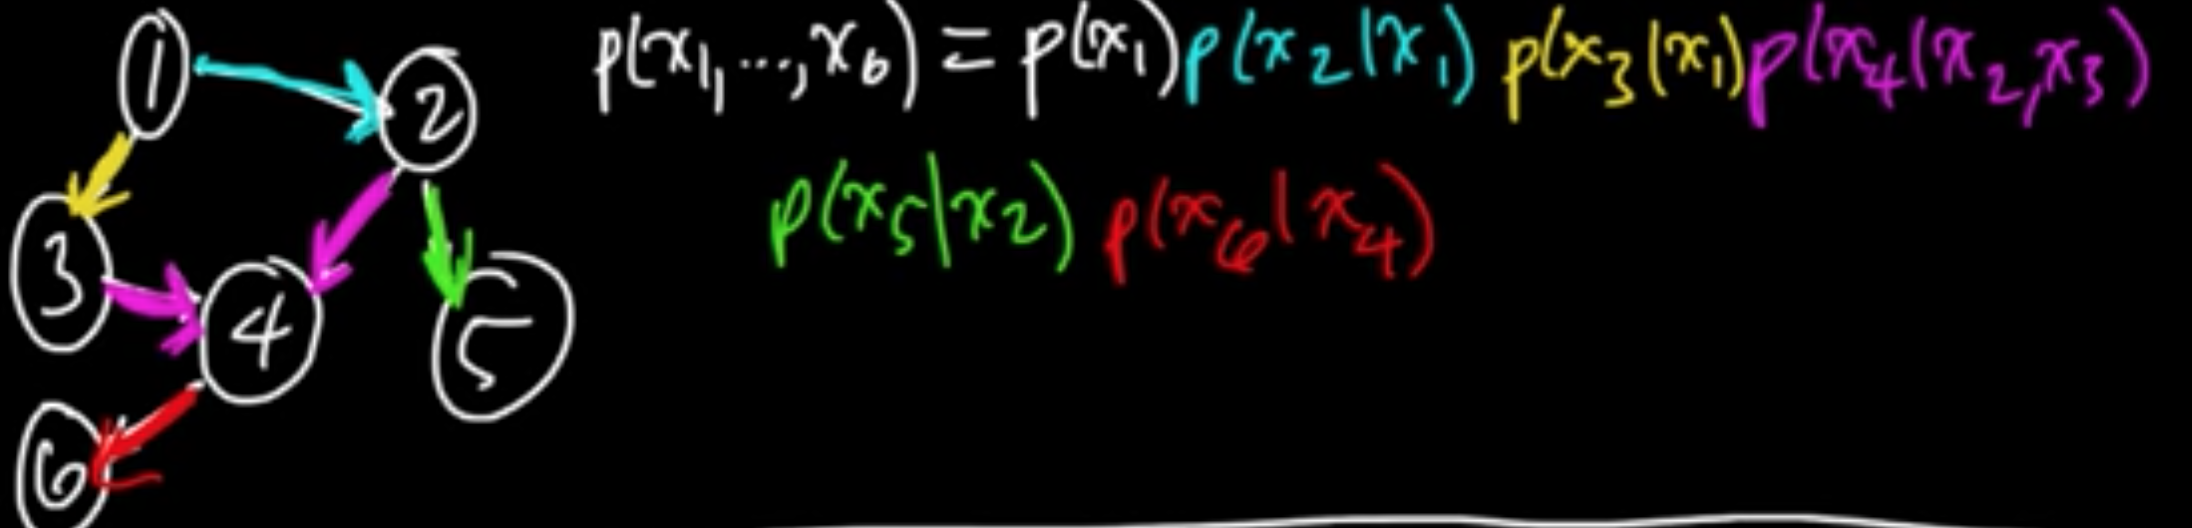 1
2
p(x₁,...,x₆) = p(x₁)p(x₂|x₁) p(x₃|x₁)p(x₄|x₂,x₃)
p(x₅|x₂) p(x₆|x₄)
3
4
5
6